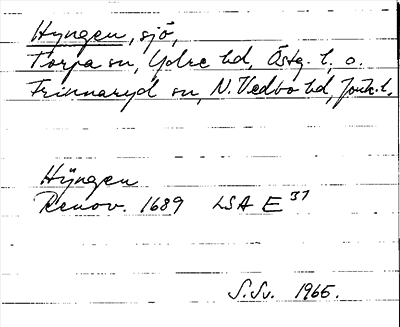 Hyngen, sjö,
Torpa sn, Ydre hd, Östg. l. o.
Frinnaryd sn, N. Vedbo hd, Jönk. l.
Hÿngen
Renov. 1689 LSA E 37
S.Sv. 1965.